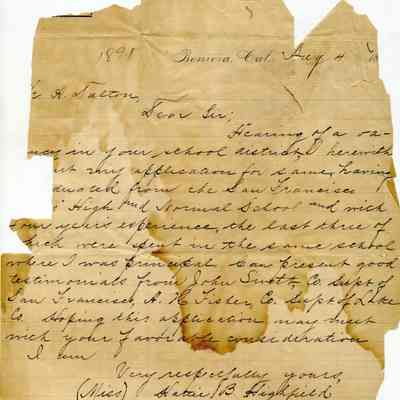 1891 Benicia, Cal. Aug 4
A. Dalton,
Dear Sir;
Hearing of a va-
ncy in your school district, I herewith
my application for same, having
duated from the San Francisco
High and Normal School and with
four years experience, the last three of
which were spent in the same school
where I was principal. Can present good
testimonials from John Swett, Co. Supt of
San Francisco, A. H. Fisher, Co. Supt of Lake
Co. Hoping this application may meet
with your favorable consideration
I am
Very respectfully yours,
(Miss) Hattie B. Highfield